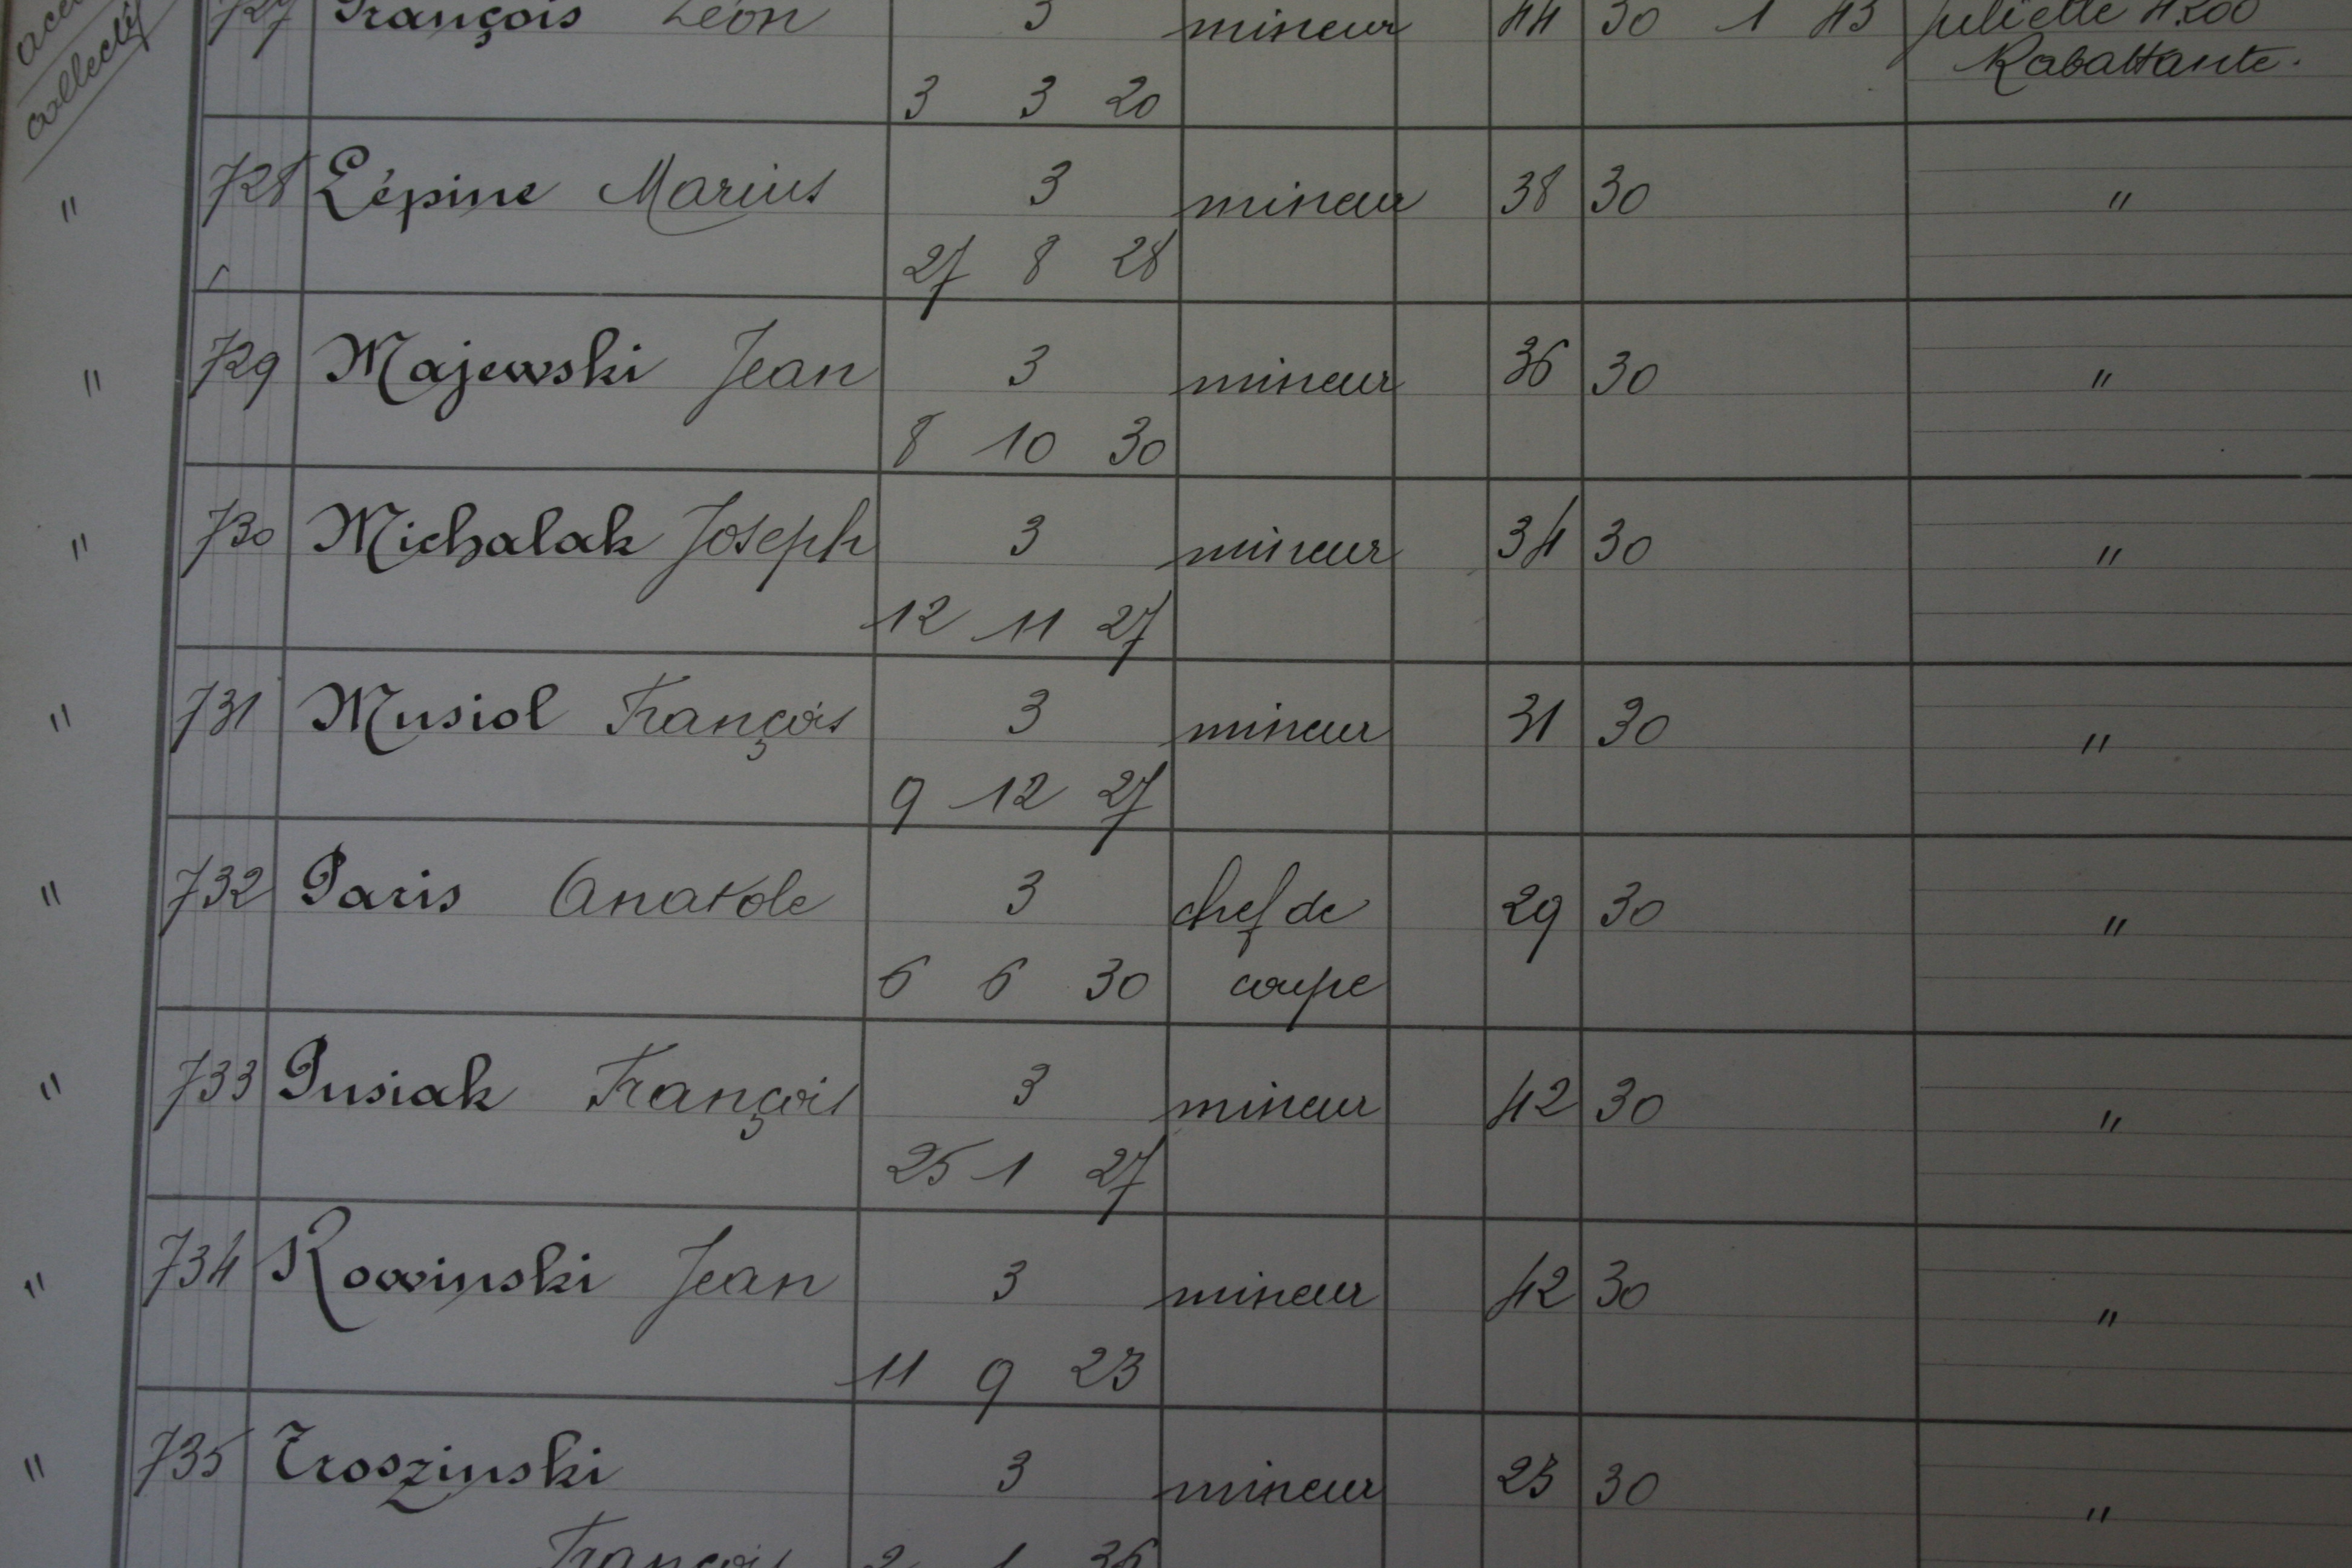 collectif
727 François Léon 3 mineur 44 30 1 43 Juliette 4200
Rabattante.
3 3 20
" 728 Lépine Marius 3 mineur 38 30 "
27 8 28
" 729 Majewski Jean 3 mineur 36 30 "
8 10 30
" 730 Michalak Joseph 3 mineur 34 30 "
12 11 27
" 731 Musiol François 3 mineur 31 30 "
9 12 27
" 732 Paris Anatole 3 chef de 29 30 "
6 6 30 coupe
" 733 Pusiak François 3 mineur 42 30 "
25 1 27
" 734 Rowinski Jean 3 mineur 42 30 "
11 9 23
" 735 Troszinski 3 mineur 23 30 "
François 2 1 36